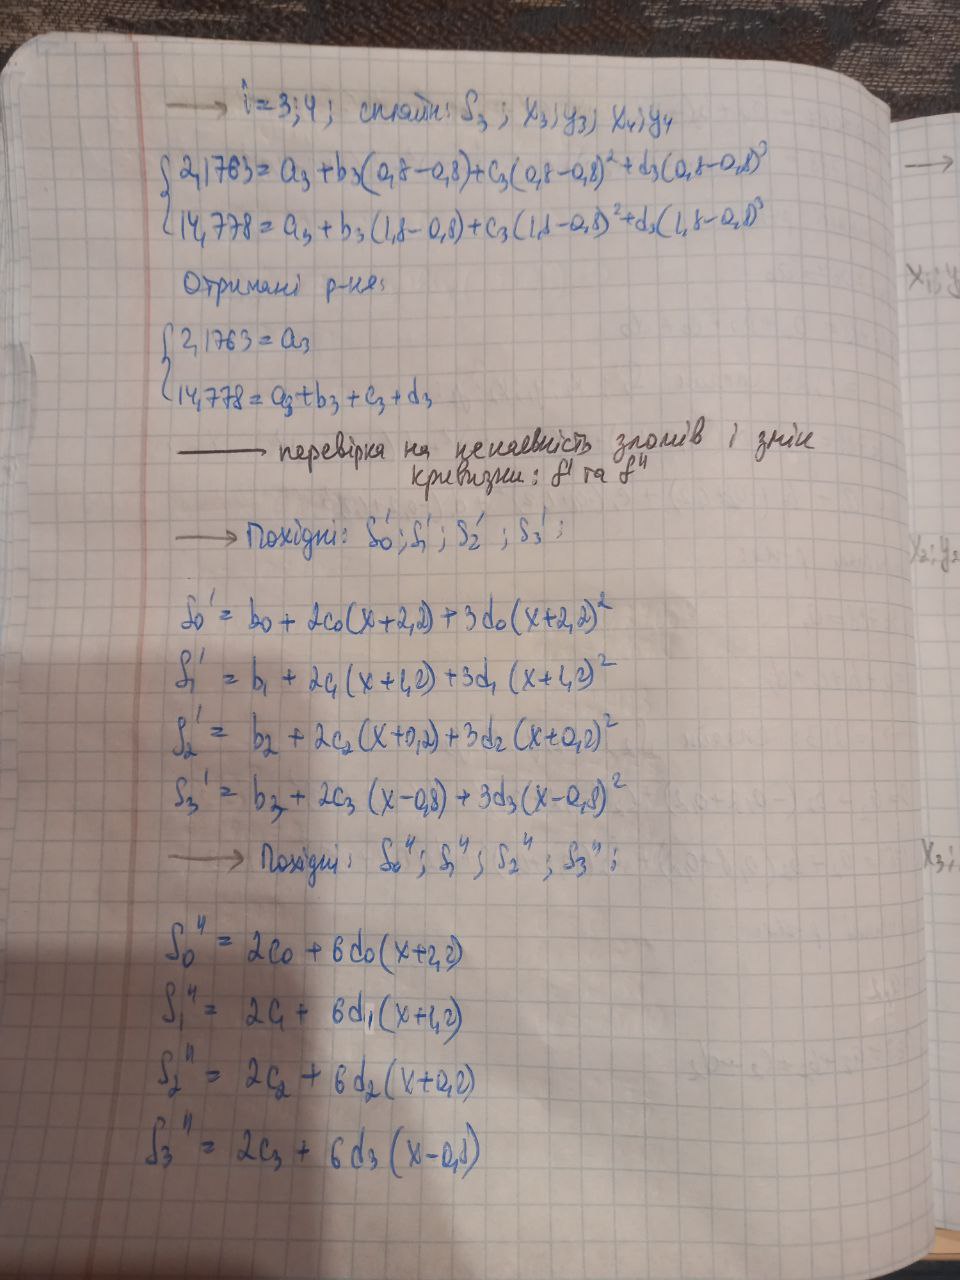 → i=3;4; сплайн: S₃; x₃;y₃; x₄;y₄
2,1763 = a₃ + b₃(0,8-0,8) + c₃(0,8-0,8)² + d₃(0,8-0,8)³
14,778 = a₃ + b₃(1,8-0,8) + c₃(1,8-0,8)² + d₃(1,8-0,8)³
Отримані р-ня:
2,1763 = a₃
14,778 = a₃ + b₃ + c₃ + d₃
перевірка на ненаявність зломів і змін
кривизни: f' та f"
→ Похідні: S₀'; S₁'; S₂'; S₃';
S₀' = b₀ + 2c₀(x+2,2) + 3d₀(x+2,2)²
S₁' = b₁ + 2c₁(x+1,2) + 3d₁(x+1,2)²
S₂' = b₂ + 2c₂(x+0,2) + 3d₂(x+0,2)²
S₃' = b₃ + 2c₃(x-0,8) + 3d₃(x-0,8)²
→ Похідні: S₀"; S₁"; S₂"; S₃";
S₀" = 2c₀ + 6d₀(x+2,2)
S₁" = 2c₁ + 6d₁(x+1,2)
S₂" = 2c₂ + 6d₂(x+0,2)
S₃" = 2c₃ + 6d₃(x-0,8)
→
x₁;y
x₂;y₂
x₃;